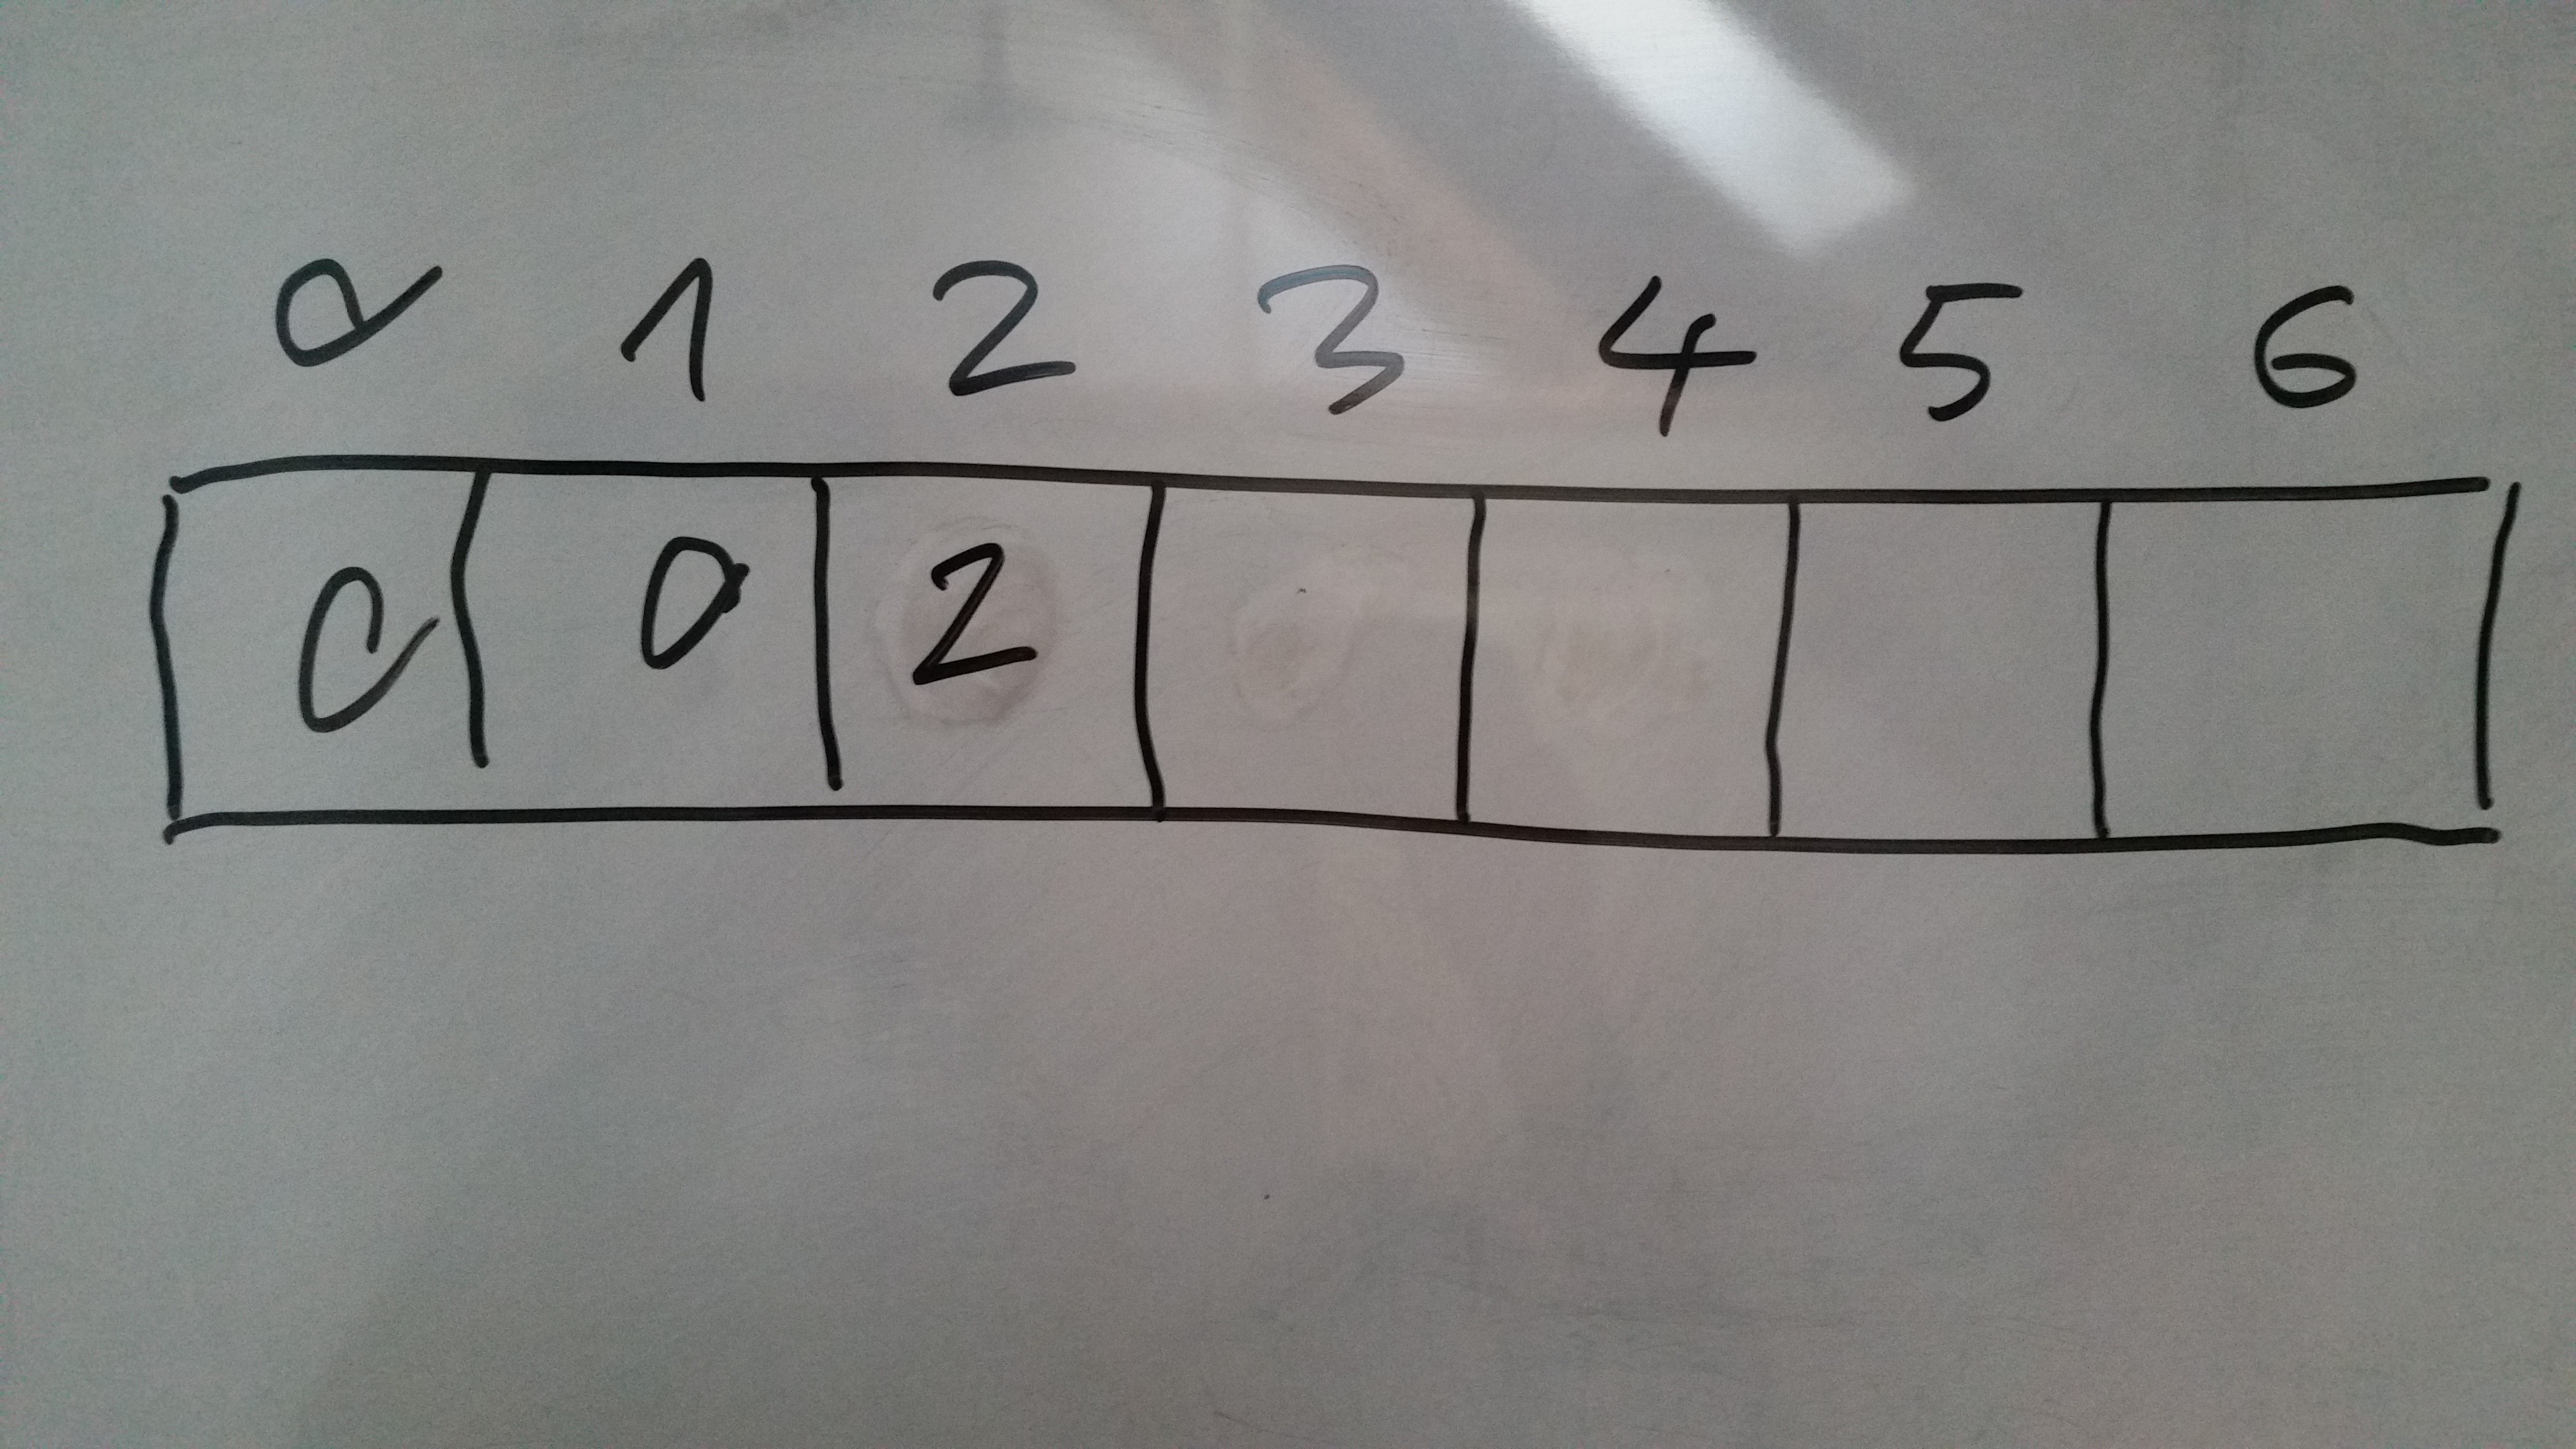 0 1 2 3 4 5 6
0 0 2